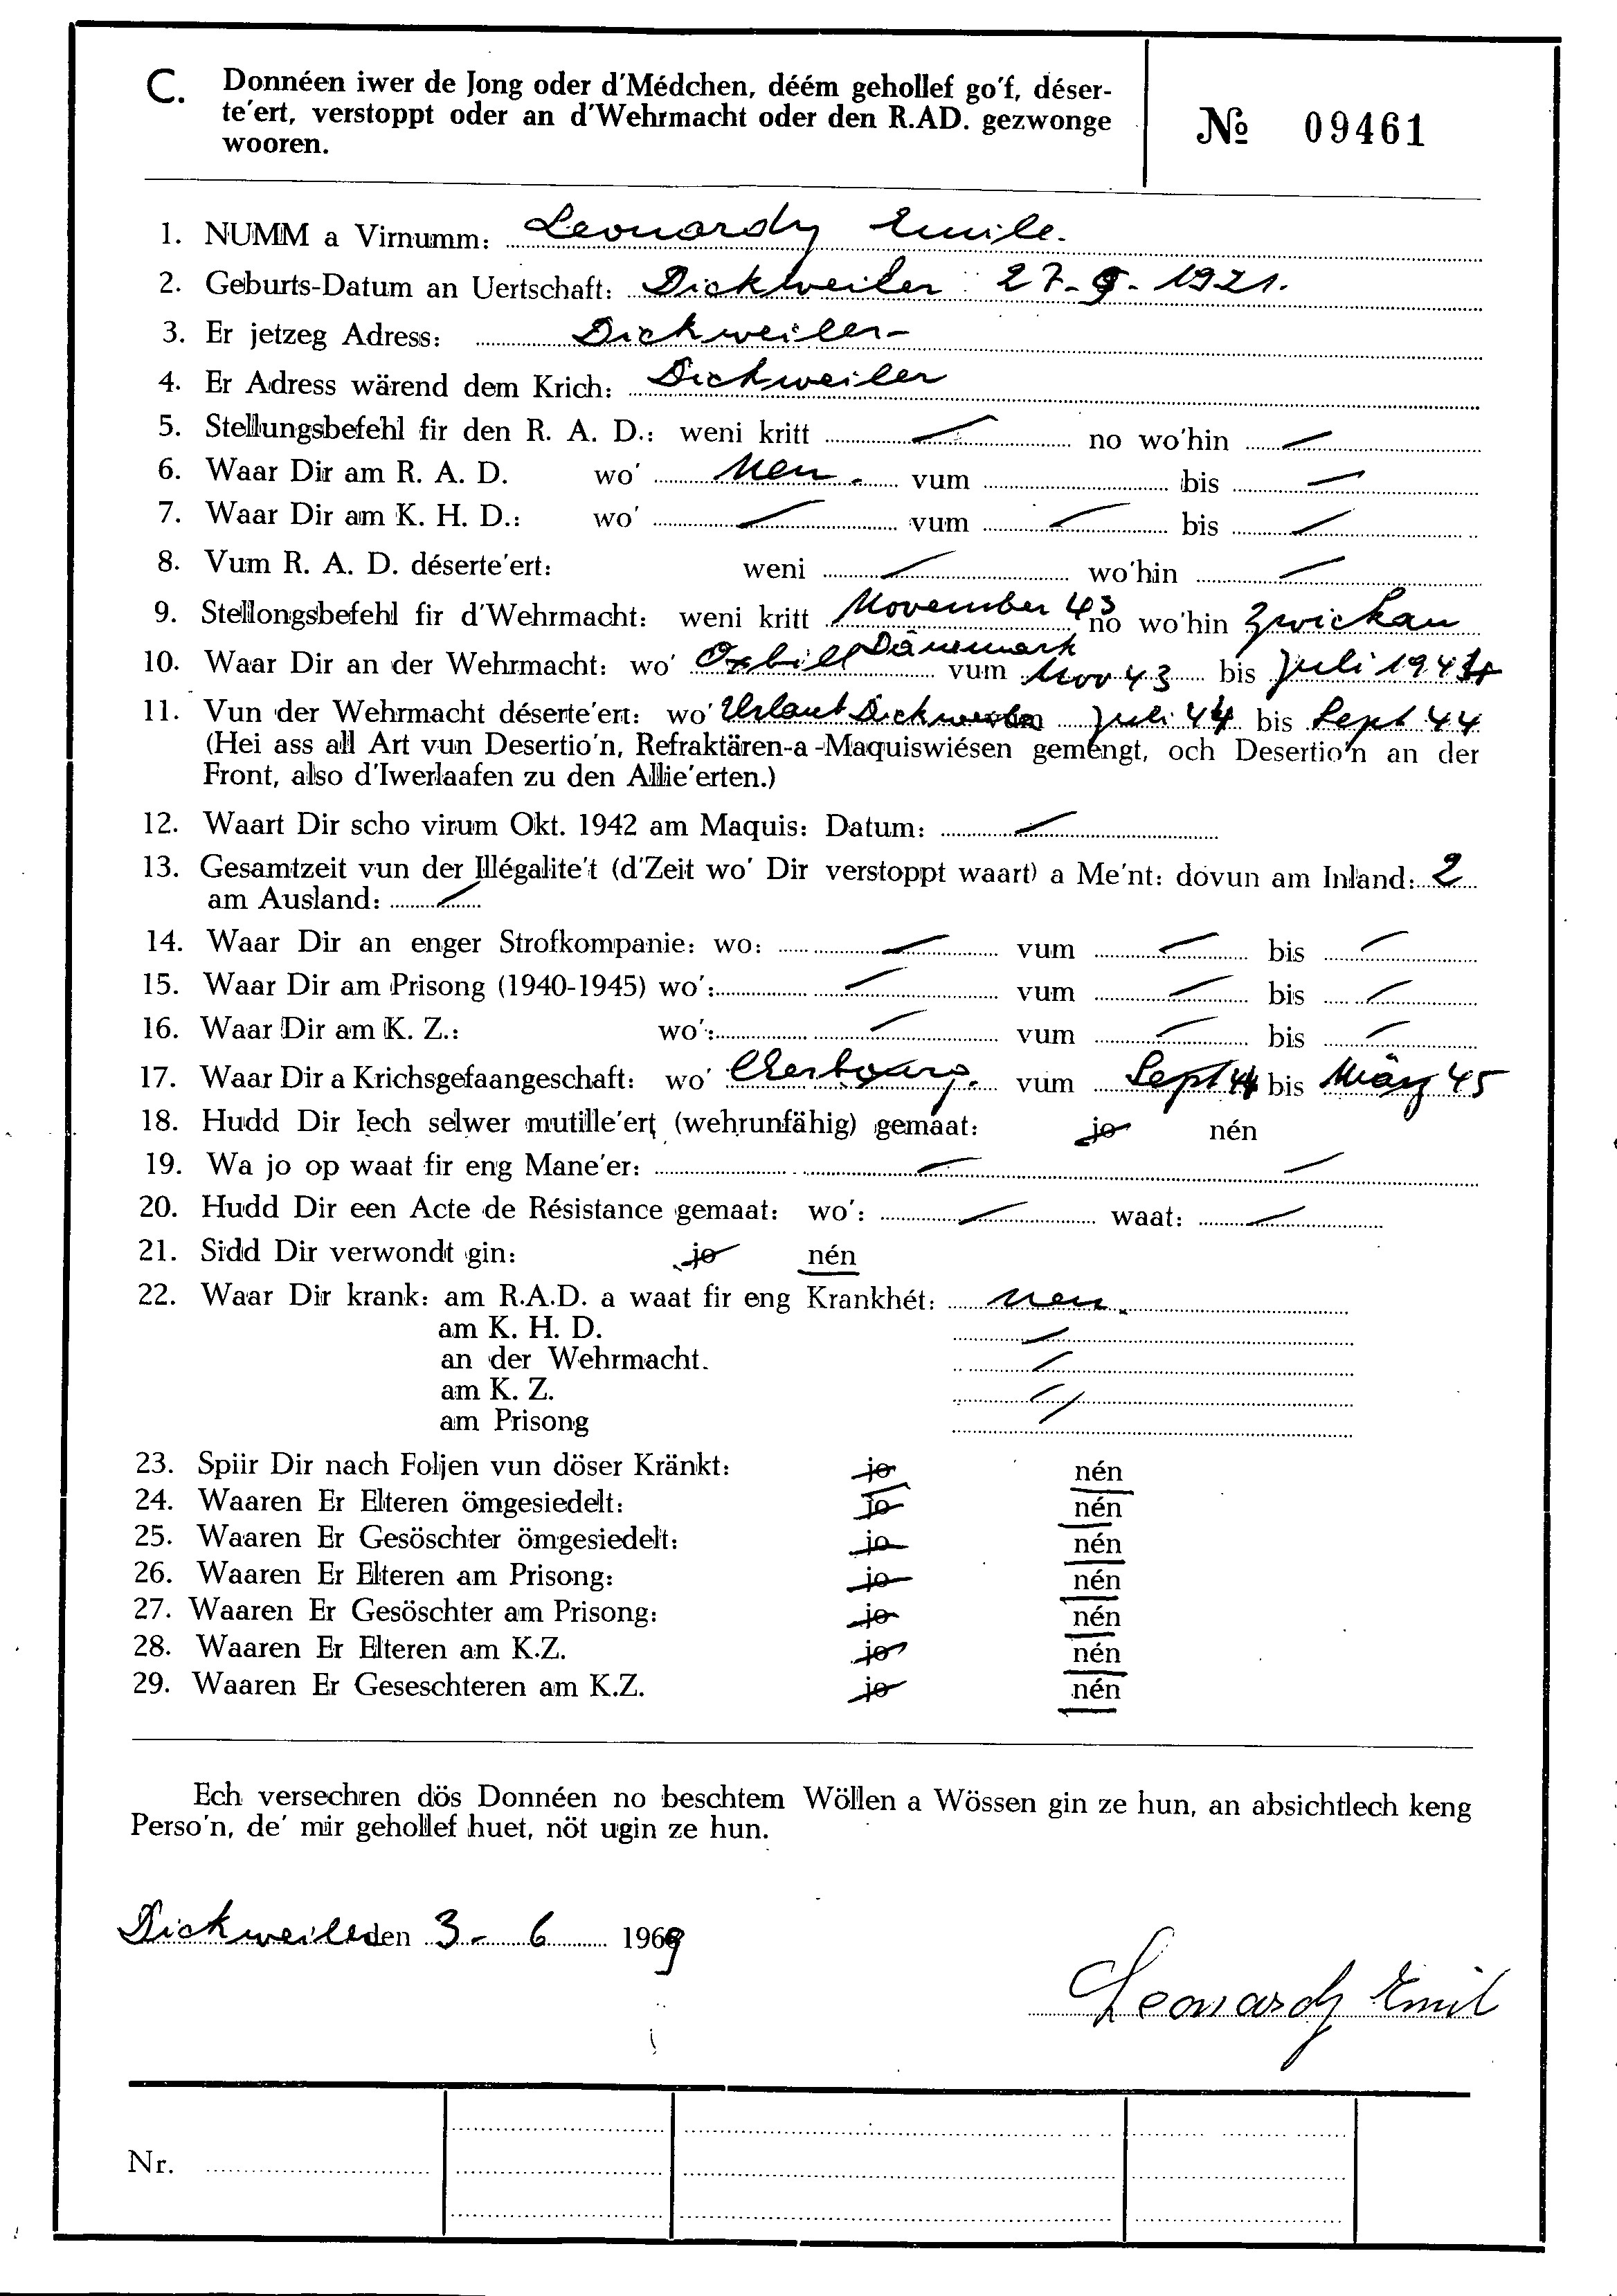 C. Donnéen iwer de Jong oder d'Médchen, déém gehollef go'f, déser-
te'ert, verstoppt oder an d'Wehrmacht oder den R.AD. gezwonge
wooren.
№ 09461
1. NUMM a Virnumm: Leonardy Emile.
2. Geburts-Datum an Uertschaft: Dickweiler 27-9-1921.
3. Er jetzeg Adress: Dickweiler
4. Er Adress wärend dem Krich: Dickweiler
5. Stellungsbefehl fir den R. A. D.: weni kritt — no wo'hin —
6. Waar Dir am R. A. D. wo' Nen. vum bis —
7. Waar Dir am K. H. D.: wo' — vum — bis —
8. Vum R. A. D. déserte'ert: weni — wo'hin —
9. Stellongsbefehl fir d'Wehrmacht: weni kritt November 43 no wo'hin Zwickau
10. Waar Dir an der Wehrmacht: wo' Oxbill Dänemark vum Nov 43 bis Juli 1944
11. Vun der Wehrmacht déserte'ert: wo' Urlaub Dickweiler Juli 44 bis Sept 44
(Hei ass all Art vun Desertio'n, Refraktären-a-Maquiswiésen gemengt, och Desertio'n an der
Front, also d'Iwerlaafen zu den Allie'erten.)
12. Waart Dir scho virum Okt. 1942 am Maquis: Datum: —
13. Gesamtzeit vun der Illégalite't (d'Zeit wo' Dir verstoppt waart) a Me'nt: dovun am Inland: 2
am Ausland: —
14. Waar Dir an enger Strofkompanie: wo: — vum — bis —
15. Waar Dir am Prisong (1940-1945) wo': — vum — bis —
16. Waar Dir am K. Z.: wo': — vum — bis —
17. Waar Dir a Krichsgefaangeschaft: wo' Cherbourg. vum Sept 44 bis März 45
18. Hudd Dir Iech selwer mutille'ert (wehrunfähig) gemaat: jo nén
19. Wa jo op waat fir eng Mane'er: — —
20. Hudd Dir een Acte de Résistance gemaat: wo': — waat: —
21. Sidd Dir verwondt gin: jo nén
22. Waar Dir krank: am R.A.D. a waat fir eng Krankhét: nen.
am K. H. D. —
an der Wehrmacht. —
am K. Z. —
am Prisong —
23. Spiir Dir nach Foljen vun döser Kränkt: jo nén
24. Waaren Er Elteren ömgesiedelt: jo nén
25. Waaren Er Gesöschter ömgesiedelt: jo nén
26. Waaren Er Elteren am Prisong: jo nén
27. Waaren Er Gesöschter am Prisong: jo nén
28. Waaren Er Elteren am K.Z. jo nén
29. Waaren Er Geseschteren am K.Z. jo nén
Ech versechren dös Donnéen no beschtem Wöllen a Wössen gin ze hun, an absichtlech keng
Perso'n, de' mir gehollef huet, nöt ugin ze hun.
Dickweiler den 3-6 1969
Leonardy Emil
Nr.